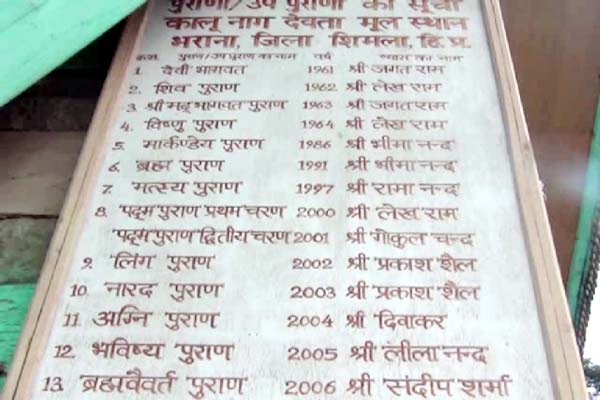 पुराणो/उप पुराणो की सूची
कालू नाग देवता मूल स्थान
भराना, जिला शिमला, हि.प्र.
क्रस. पुराण/उप पुराण का नाम वर्ष व्यास का नाम
1. देवी भागवत 1961 श्री जगत राम
2. शिव पुराण 1962 श्री लेख राम
3. श्री मद् भागवत पुराण 1963 श्री जगत राम
4. विष्णु पुराण 1964 श्री लेख राम
5. मार्कण्डेय पुराण 1986 श्री भीमा नन्द
6. ब्रह्म पुराण 1991 श्री भीमा नन्द
7. मत्स्य पुराण 1997 श्री रामा नन्द
8. पद्म पुराण प्रथम चरण 2000 श्री लेख राम
पद्म पुराण द्वितीय चरण 2001 श्री गोकुल चन्द
9. लिंग पुराण 2002 श्री प्रकाश शैल
10. नारद पुराण 2003 श्री प्रकाश शैल
11. अग्नि पुराण 2004 श्री दिवाकर
12. भविष्य पुराण 2005 श्री लीला नन्द
13. ब्रह्मवैवर्त पुराण 2006 श्री संदीप शर्मा